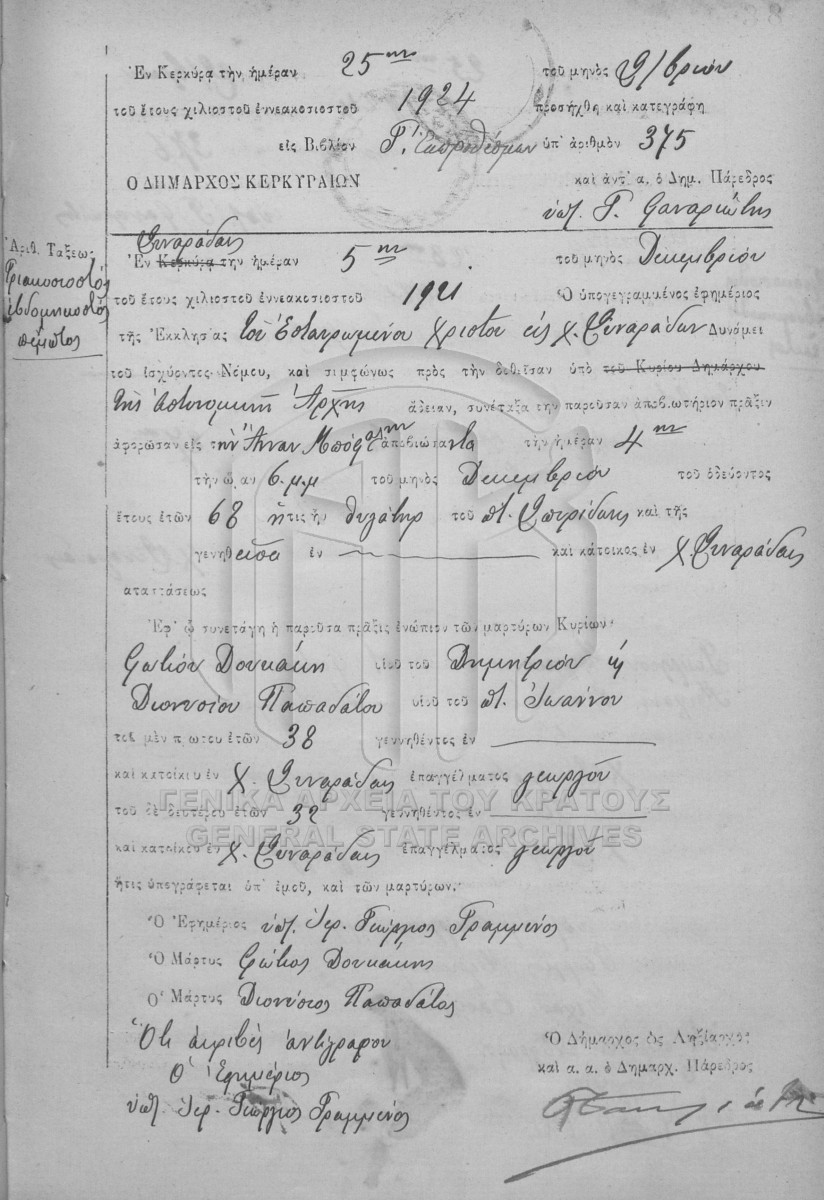 Ἐν Κερκύρᾳ τὴν ἡμέραν 25ην τοῦ μηνὸς 9/βρίου
τοῦ ἔτους χιλιοστοῦ ἐννεακοσιοστοῦ 1924 προσήχθη καὶ κατεγράφη
εἰς Βιβλίον Γ΄. Ἐκπροθέσμων ὑπ' ἀριθμὸν 375
Ο ΔΗΜΑΡΧΟΣ ΚΕΡΚΥΡΑΙΩΝ καὶ ἀντ' α. ὁ Δημ. Πάρεδρος
ὑπ. Γ.
Ἀριθ. Τάξεως
Τριακοσιοστὸς
ἑβδομηκοστὸς
πέμπτος
Συναράδας
Ἐν Κερκύρᾳ την ἡμέραν 5ην τοῦ μηνὸς Δεκεμβρίου
τοῦ ἔτους χιλιοστοῦ ἐννεακοσιοστοῦ 1921 Ὁ ὑπογεγραμμένος ἐφημέριος
τῆς Ἐκκλησίας τοῦ Ἐσταυρωμένου Χριστοῦ εἰς χ. Συναράδων Δυνάμει
τοῦ ἰσχύοντος Νόμου, καὶ συμφώνως πρὸς τὴν δοθεῖσαν ὑπὸ τοῦ Κυρίου Δημάρχου
τῆς Ἀστυνομικῆς Ἀρχῆς ἄδειαν, συνέταξα την παροῦσαν ἀποβιωτήριον πρᾶξιν
ἀφορῶσαν εἰς τὴν Ἄνναν ἀποβιώσαντα τὴν ἡμέραν 4ην
τὴν ὥραν 6 μ.μ τοῦ μηνὸς Δεκεμβρίου τοῦ ὁδεύοντος
ἔτους ἐτῶν 68 ἥτις ἦν θυγάτηρ τοῦ πτ. Σπυρίδωνος καὶ τῆς
γεννηθεῖσα ἐν καὶ κάτοικος ἐν χ. Συναράδας
καταστάσεως
Ἐφ' ᾧ συνετάγη ἡ παροῦσα πρᾶξις ἐνώπιον τῶν μαρτύρων Κυρίων
Φωτίου Δουκάκη υἱοῦ τοῦ Δημητρίου ϗ
Διονυσίου Παπαδάτου υἱοῦ τοῦ πτ. Ἰωάννου
τοῦ μὲν πρώτου ἐτῶν 38 γεννηθέντος ἐν
καὶ κατοίκου ἐν χ. Συναράδας ἐπαγγέλματος γεωργοῦ
τοῦ δὲ δευτέρου ἐτῶν 32 γεννηθέντος ἐν
καὶ κατοίκου ἐν χ. Συναράδας ἐπαγγέλματος γεωργοῦ
ἥτις ὑπογράφεται ὑπ' ἐμοῦ, καὶ τῶν μαρτύρων.
Ὁ Ἐφημέριος ὑπ. Ἱερ. Γεώργιος Γραμμένος
Ὁ Μάρτυς Φώτιος Δουκάκης
Ὁ Μάρτυς Διονύσιος Παπαδάτος
Ὅτι ἀκριβὲς ἀντίγραφον
Ὁ Ἐφημέριος
ὑπ. Ἱερ. Γεώργιος Γραμμένος
Ὁ Δήμαρχος ὡς Ληξίαρχος
καὶ α. α. ὁ Δημαρχ. Πάρεδρος
ΓΕΝΙΚΑ ΑΡΧΕΙΑ ΤΟΥ ΚΡΑΤΟΥΣ
GENERAL STATE ARCHIVES